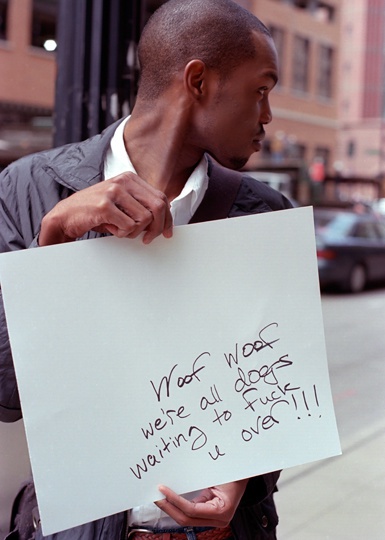 Woof Woof
we're all dogs
waiting to fuck
u over!!!